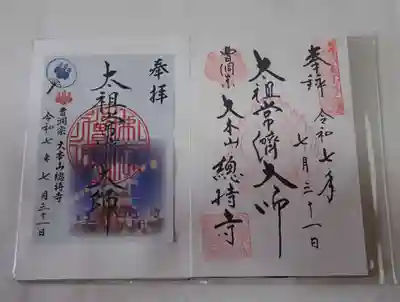 奉拝
令和七年
七月三十一日
太祖常濟大師
曹洞宗
大本山總持寺
奉拝
太祖常濟大師
曹洞宗 大本山總持寺
令和七年七月三十一日